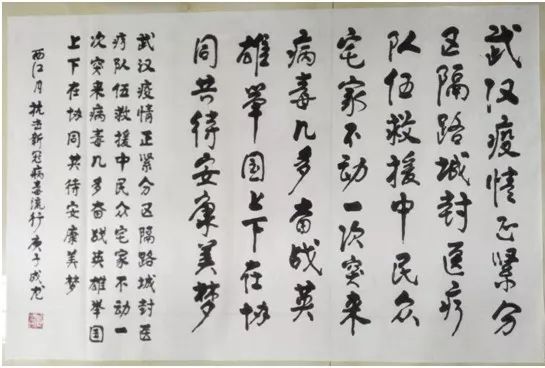 武汉疫情正紧分
区隔路城封医疗
队伍救援中民众
宅家不动一次突来
病毒几多奋战英
雄举国上下在协
同共待安康美梦
武汉疫情正紧分区隔路城封医
疗队伍救援中民众宅家不动一
次突来病毒几多奋战英雄举国
上下在协同共待安康美梦
西江月 抗击新冠病毒流行 庚子成龙